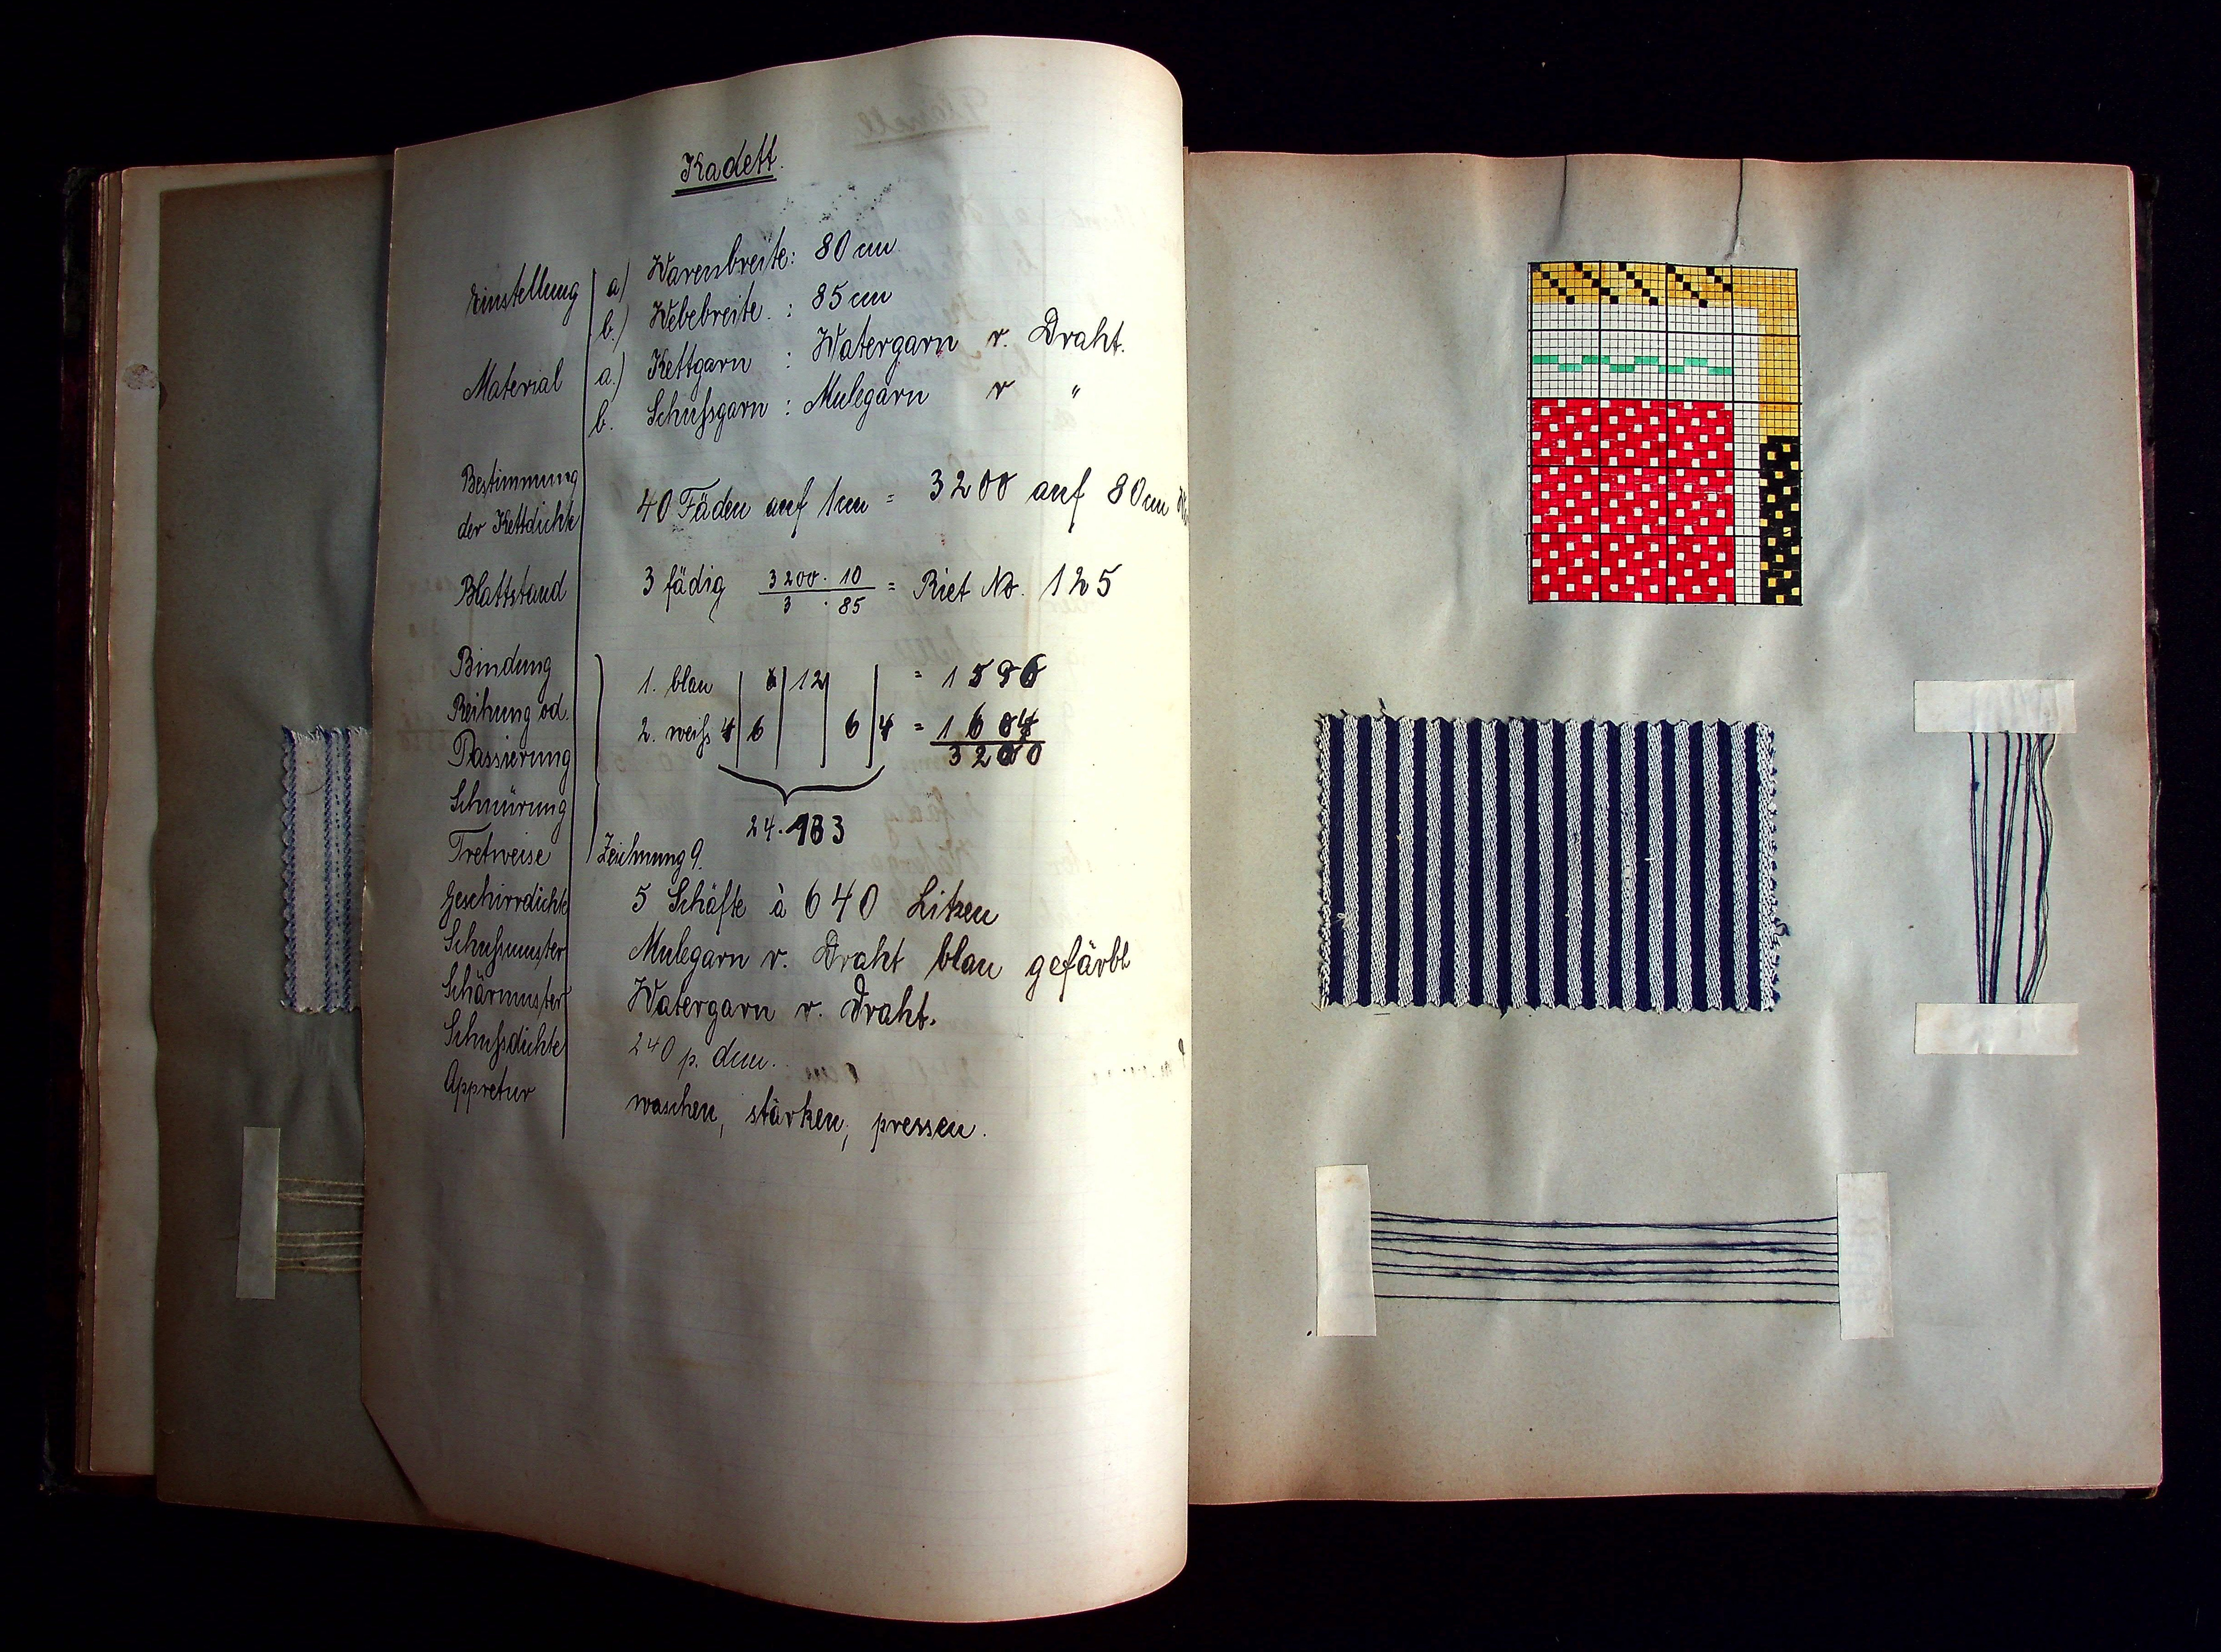 Kadett.
Einstellung a) Warenbreite: 80 cm
b.) Webebreite : 85 cm
Material a.) Kettgarn : Watergarn r. Draht.
b. Schußgarn : Mulegarn r "
Bestimmung
der Kettdichte 40 Fäden auf 1cm = 3200 auf 80cm
Blattstand 3 fädig 3200 · 10 / 3 · 85 = Riet No. 125
Bindung
1. blau 12 = 1596
Reihung od.
2. weiß 4 6 6 4 = 1604
Passierung 3200
Schnürung
24 · 133
Tretweise Zeichnung 9.
Geschirrdichte 5 Schäfte à 640 Litzen
Schußmuster Mulegarn r. Draht blau gefärbt
Schärmuster Watergarn r. Draht.
Schußdichte 240 p. dcm.
Appretur waschen, stärken, pressen.